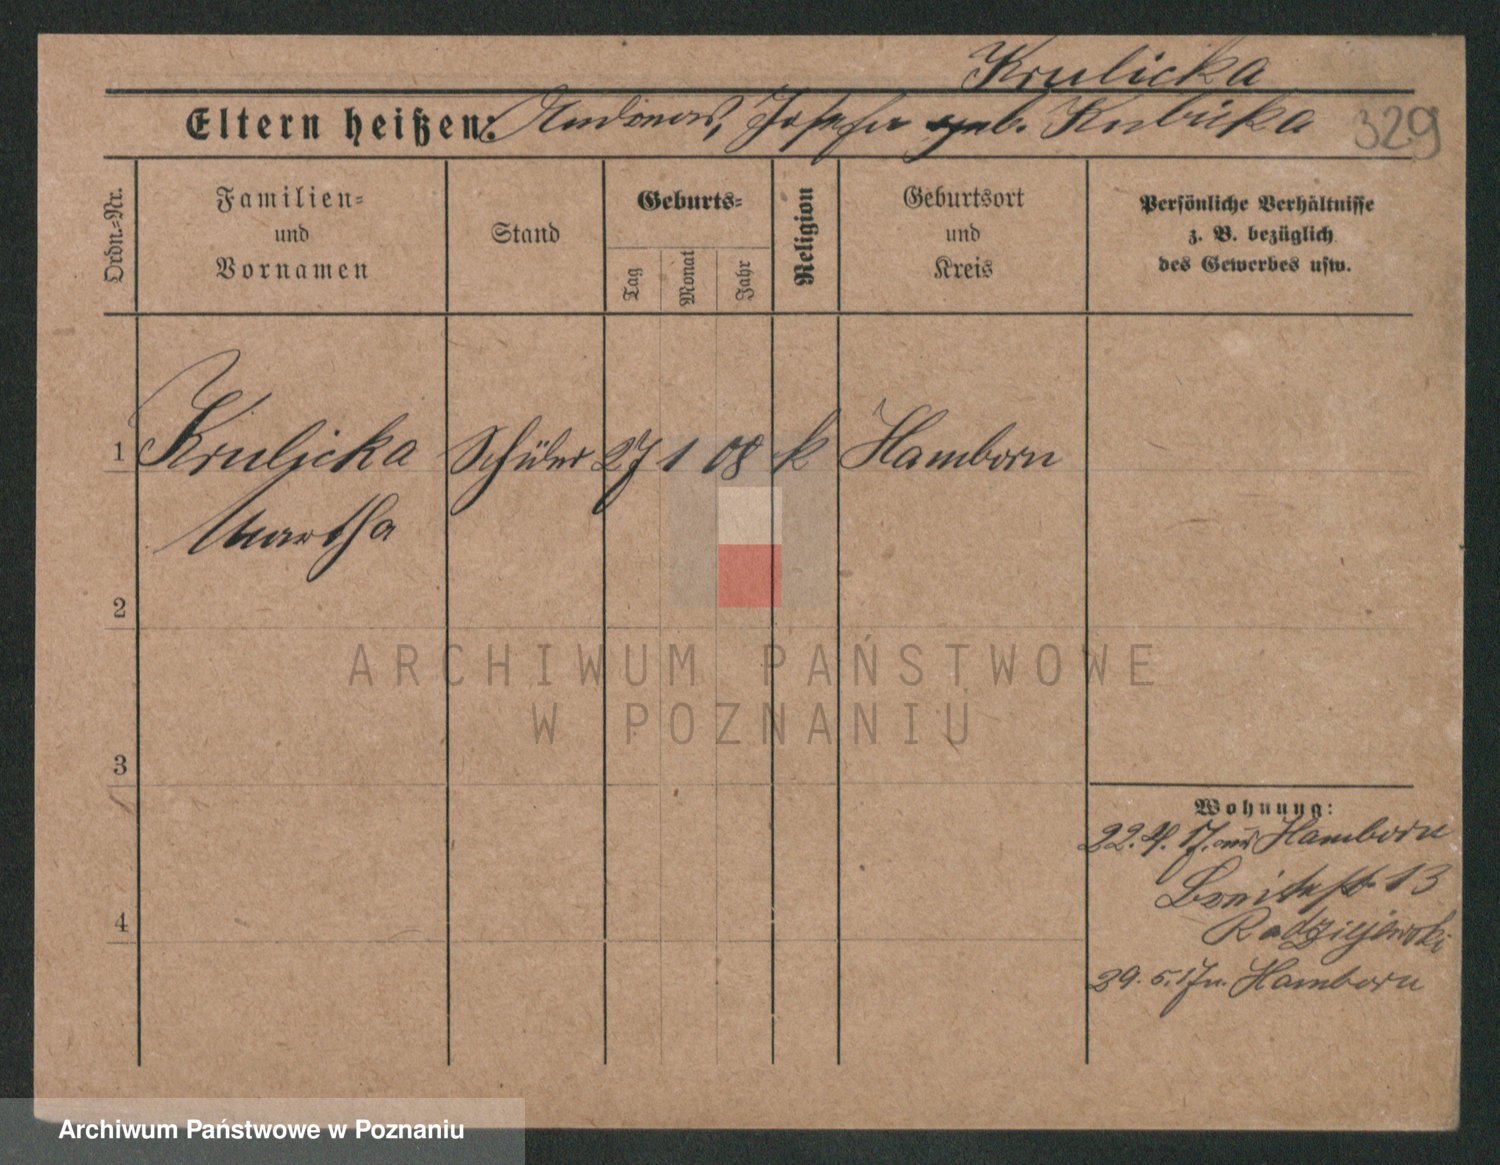 Krulicka
Eltern heißen: Andreas, Josefa geb. Kubicka
329
Ordn.-Nr.
Familien-
und
Vornamen
Stand
Geburts-
Tag
Monat
Jahr
Religion
Geburtsort
und
Kreis
Persönliche Verhältnisse
z. B. bezüglich
des Gewerbes usw.
1 Krulicka Schüler 27 1 08 k Hamborn
Martha
2
3
4
Wohnung:
22.4.17. aus Hamborn
Breitestr. 13
Radziejewski
29.5.17 n. Hamborn
ARCHIWUM PAŃSTWOWE
W POZNANIU
Archiwum Państwowe w Poznaniu